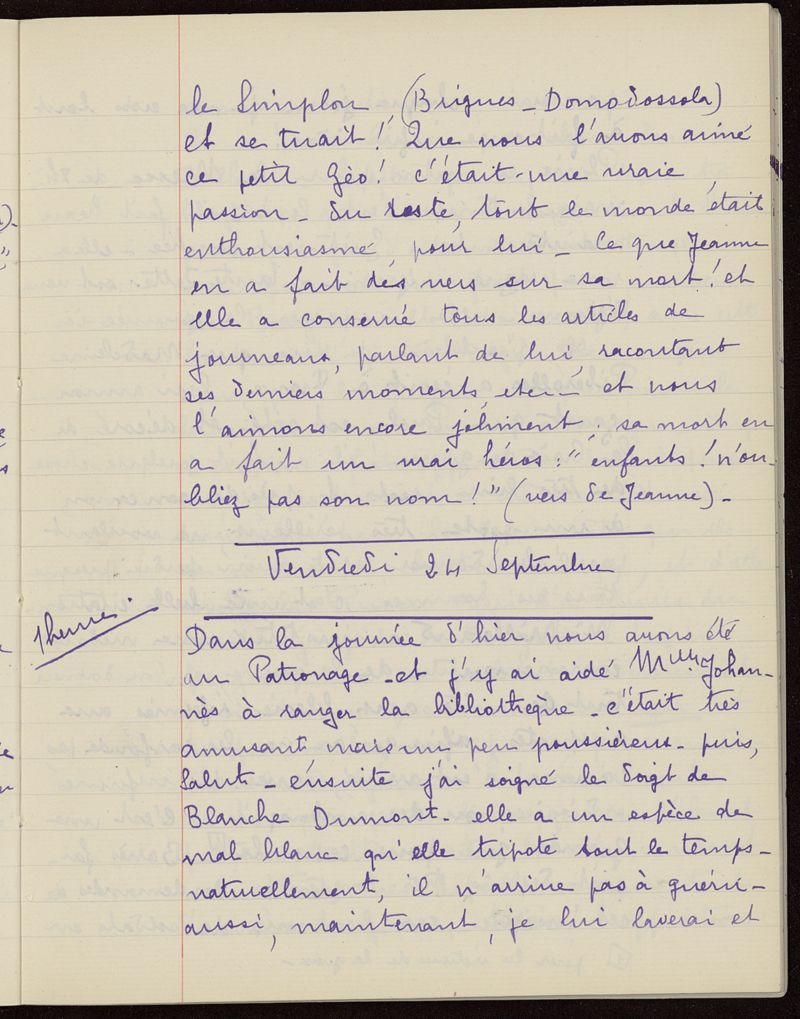 le Simplon, (Brigues - Domodossola)
et se tuait! Que nous l'avons aimé
ce petit Géo! c'était une vraie
passion - du reste, tout le monde était
enthousiasmé pour lui - Ce que Jeanne
en a fait des vers sur sa mort! et
elle a conservé tous les articles de
journeaux, parlant de lui, racontant
ses derniers moments, etc - et nous
l'aimons encore joliment; sa mort en
a fait un vrai héros: "enfants! n'ou-
bliez pas son nom!" (vers de Jeanne) -
Vendredi 24 Septembre
1 heure.
Dans la journée d'hier nous avons été
au Patronage - et j'y ai aidé Melle Johan-
nès à ranger la bibliothèque - c'était très
amusant mais un peu poussiéreux - puis,
Salut - ensuite j'ai soigné le doigt de
Blanche Dumont - elle a un espèce de
mal blanc qu'elle tripote tout le temps -
naturellement, il n'arrive pas à guérir -
aussi, maintenant, je lui laverai et